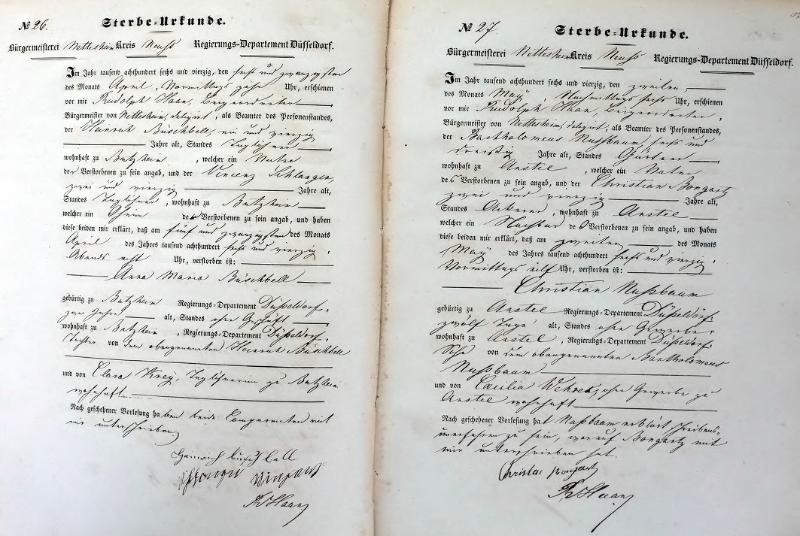 № 26.
Sterbe-Urkunde.
Bürgermeisterei Nettesheim Kreis Neuß Regierungs-Departement Düsseldorf.
Im Jahr tausend achthundert sechs und vierzig, den sechs und zwanzigsten
des Monats April, Vormittags zehn Uhr, erschienen
vor mir Rudolph Haan, Beigeordneten
Bürgermeister von Nettesheim, delegirt, als Beamter des Personenstandes,
der Heinrich Büschbell, ein und vierzig
Jahre alt, Standes Taglöhner
wohnhaft zu Butzheim, welcher ein Vater
der Verstorbenen zu sein angab, und der Vincenz Schlangen
zwei und vierzig Jahre alt,
Standes Taglöhner, wohnhaft zu Butzheim
welcher ein Oheim der Verstorbenen zu sein angab, und haben
diese beiden mir erklärt, daß am fünf und zwanzigsten des Monats
April des Jahres tausend achthundert sechs und vierzig,
Abends acht Uhr, verstorben ist:
Anna Maria Büschbell
gebürtig zu Butzheim Regierungs-Departement Düsseldorf,
alt, Standes ohne Geschäft
wohnhaft zu Butzheim, Regierungs-Departement Düsseldorf,
Tochter von dem obengenannten Heinrich Büschbell
und von Clara Krey, Taglöhnerin zu Butzheim
wohnhaft
Nach geschehener Vorlesung haben beide Comparenten mit
mir unterschrieben
Heinrich Büschbell
Schlangen Vinzens
RHaan
№ 27.
Sterbe-Urkunde.
Bürgermeisterei Nettesheim Kreis Neuß Regierungs-Departement Düsseldorf.
Im Jahr tausend achthundert sechs und vierzig, den zweiten
des Monats May Nachmittags sechs Uhr, erschienen
vor mir Rudolph Haan, Beigeordneten
Bürgermeister von Nettesheim, delegirt, als Beamter des Personenstandes,
der Bartholomeus Nussbaum, sechs und
dreißig Jahre alt, Standes
wohnhaft zu Anstel, welcher ein Vater
des Verstorbenen zu sein angab, und der Christian Bongartz
zwei und vierzig Jahre alt,
Standes Ackerer, wohnhaft zu Anstel
welcher ein Nachbar des Verstorbenen zu sein angab, und haben
diese beiden mir erklärt, daß am zweiten des Monats
May des Jahres tausend achthundert sechs und vierzig,
Vormittags eilf Uhr, verstorben ist:
Christian Nußbaum
gebürtig zu Anstel Regierungs-Departement Düsseldorf
zwölf Tage alt, Standes ohne Gewerbe,
wohnhaft zu Anstel, Regierungs-Departement Düsseldorf
Sohn von dem obengenannten Bartholomeus
Nussbaum
und von Cäcilia ohne Gewerbe zu
Anstel wohnhaft
Nach geschehener Vorlesung hat Nußbaum erklärt schreibens
unerfahren zu sein, worauf Bongartz mit
mir unterschrieben hat.
Christian Bongartz
RHaan